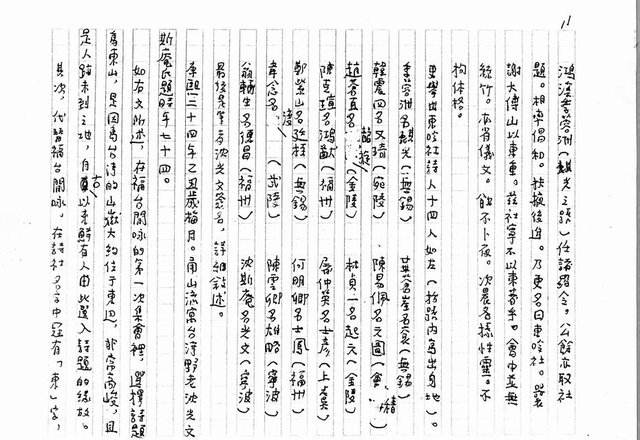 11
鴻溪季蓉洲（麒光之號）任諸羅令。公餘亦取社
題。相率倡和。扶掖後進。乃更名曰東吟社。曩
謝大傅山以東重。茲社寧不以東著乎。會中並無
絲竹。亦省儀文。飲不卜夜。次晨各攄性靈。不
拘体格。
更舉出東吟社詩人十四人如左（括號內為出身地）。
季蓉洲名麒光（無錫）　華蒼崖名袞（無錫）
韓震西名又琦（宛陵）　陳易佩名元圖（會稽）
趙蒼直名龍旋（金陵）　林貞一名起元（金陵）
陳克瑄名鴻猷（福州）　屠仲英名士彥（上虞）
鄭紫山名廷桂（無錫）　何明卿名士鳳（福州）
韋念名渡（武陵）　陳雲卿名雄略（寧波）
翁輔生名德昌（福州）　沈斯庵名光文（寧波）
最後是筆者沈光文簽名，詳細敘述。
康熙二十四年乙丑歲梅月。甬山流寓台灣野老沈光文
斯庵氏題時年七十四
如右文所述，在福台閒咏的第一次集會裡，選擇詩題
為東山，是因為台灣的山嶽大約位于東边，非常高峻，且
是人跡未到之地，自古以來鮮有人由此選入詩題的緣故。
其次，代替福台閒咏，在詩社名字中冠有「東」字，